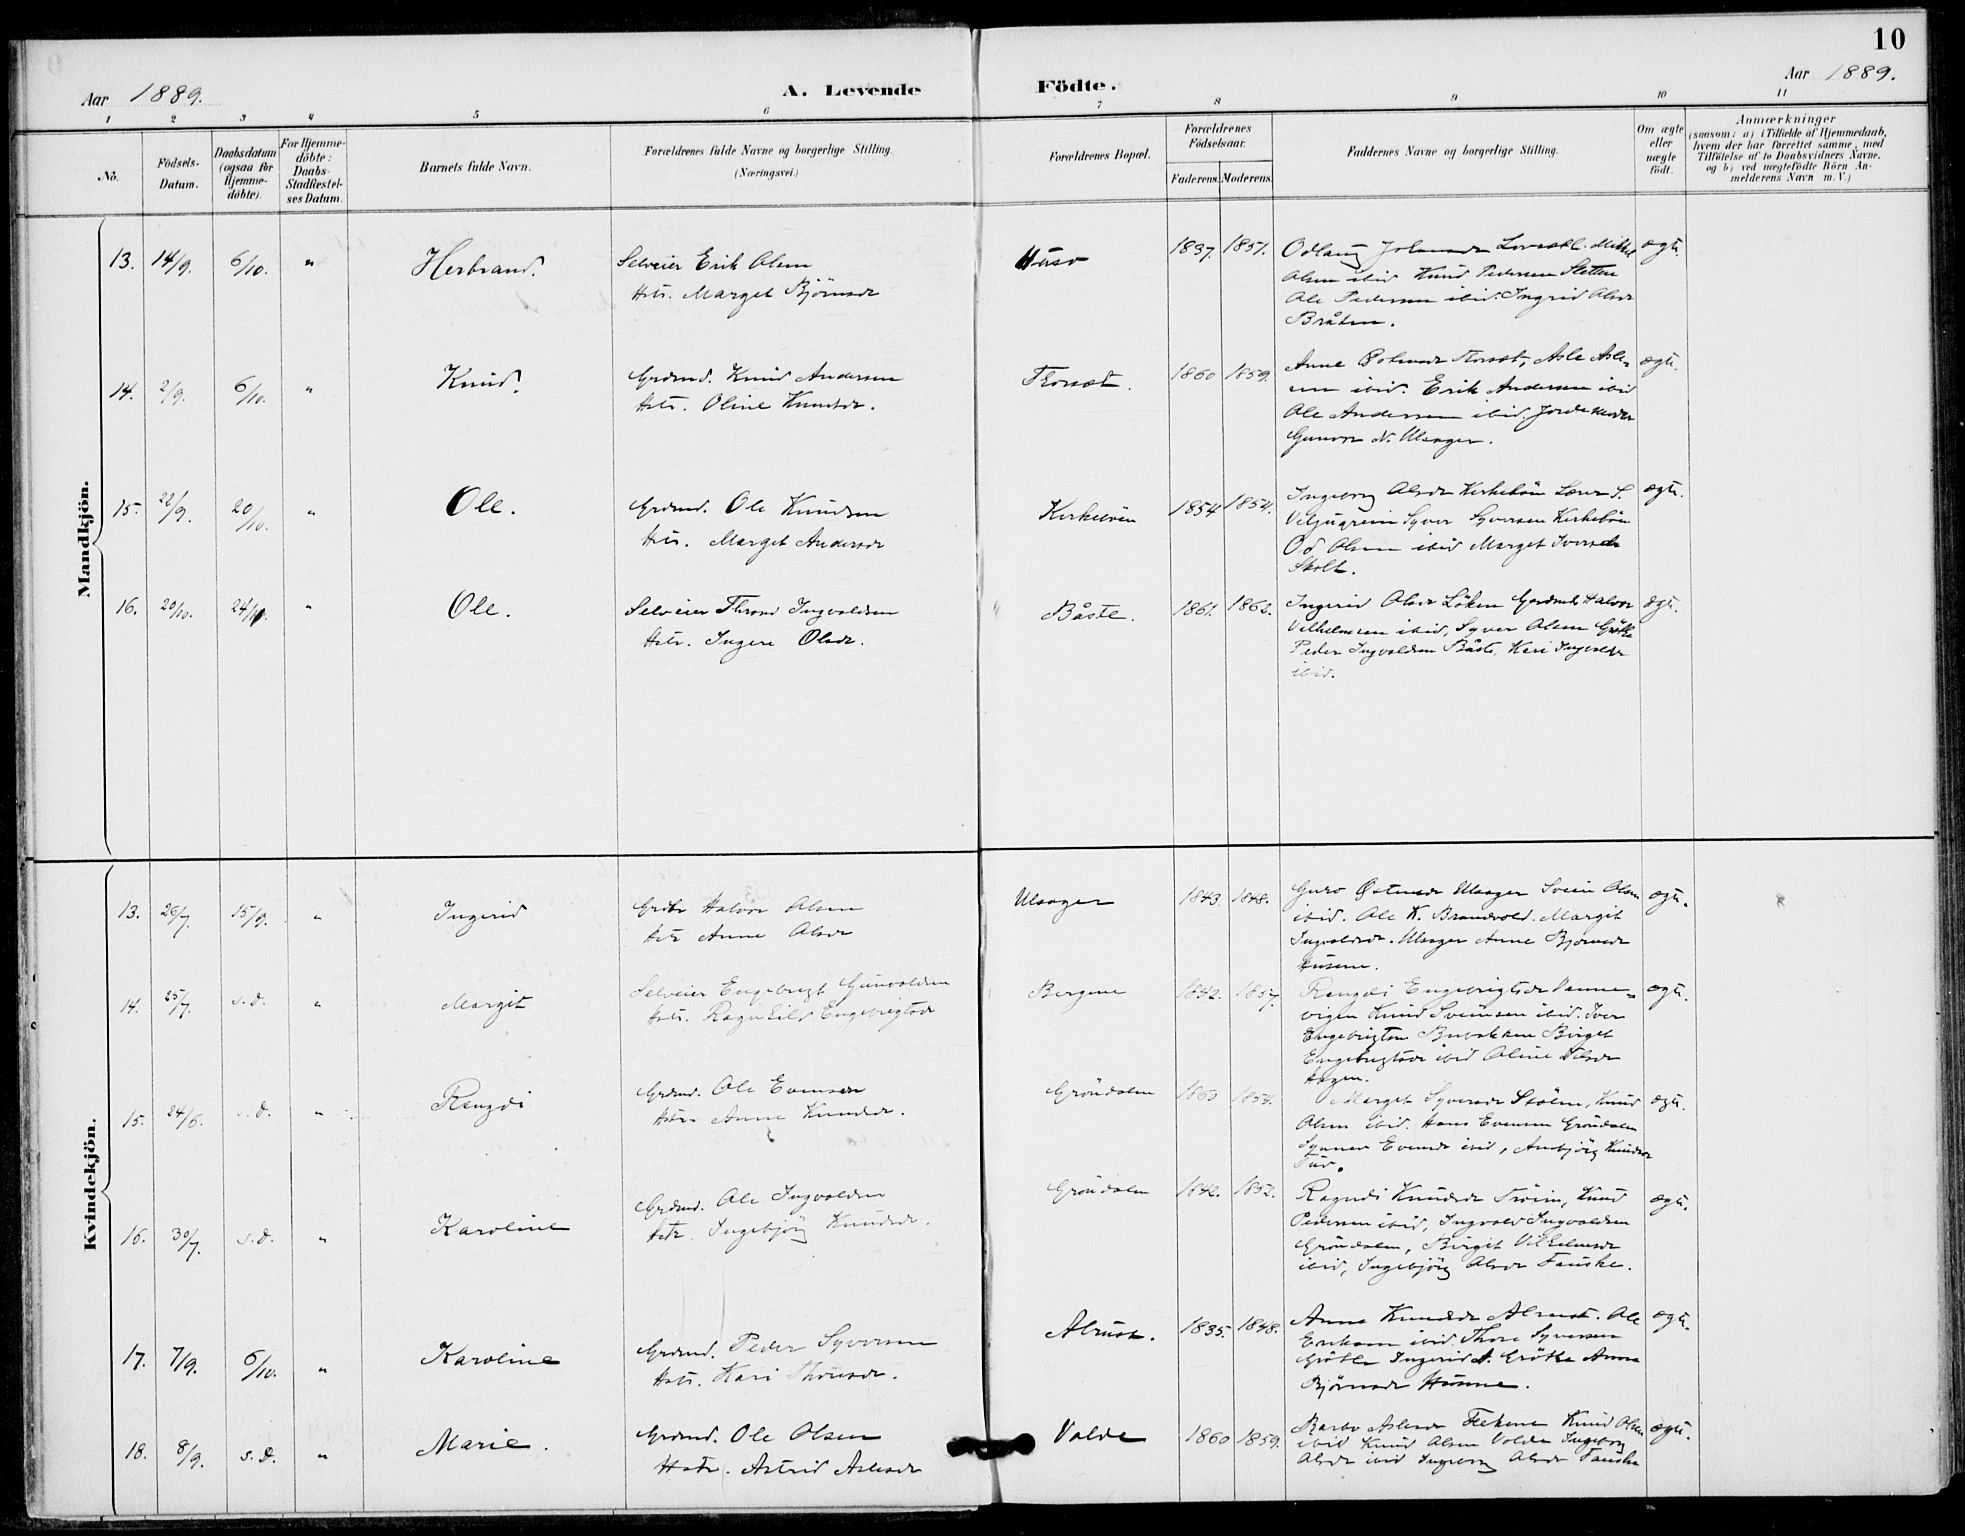 10
Aar 1889.
A. Levende Födte.
Aar 1889.
1 2 3 4 5 6 7 8 9 10 11
No.
Födsels-Datum.
Daabsdatum (ogsaa for Hjemme-döbte).
For Hjemme-döbte: Daabs-Stadfæstel-ses Datum.
Barnets fulde Navn.
Forældrenes fulde Navne og borgerlige Stilling.
(Næringsvei.)
Forældrenes Bopæl.
Forældrenes Födselsaar.
Faderens. Moderens.
Faddernes Navne og borgerlige Stilling.
Om ægte eller uægte födt.
Anmærkninger
(saasom: a) i Tilfælde af Hjemmedaab,
hvem der har forrettet samme, med
Tilföielse af to Daabsvidners Navne,
og b) ved uægtefödte Börn An-
melderens Navn m. V.)
Mandkjön.
13. 14/9. 6/10. " Herbrand. Selveier Erik Olsen
Hstr. Marget Björnsdr
Huso 1837. 1851. Odlaug Lovsett. Mikkel
Olsen ibid Knud Pedersen Sletten
Ole Pedersen ibid. Ingrid Olsdr
Bråten.
ægte.
14. 2/9. 6/10. " Knud. Grdmd. Knud Andersen
Hstr. Oline Knudsdr.
Thorset. 1860 1859. Anne Torset, Asle Asle-
sen ibid. Erik Andersen ibid
Ole Andersen ibid. Jordemoder
Gunvor N. Ulsager.
ægte.
15. 22/9. 20/10. " Ole. Grdmd. Ole Knudsen
Hstr. Marget Andersdr
Kirkebøen 1854 1854. Ingeborg Olsdr Kirkebön Lærer S.
Veljugrein Syver Syversen Kirkebön
Od Olsen ibid Marget Iversdr
Skolt.
ægte.
16. 20/10. 24/10. " Ole. Selveier Thrond Ingvaldsen
Hstr. Ingere Olsdr.
Båste. 1861. 1862. Ingerid Olsdr Löken Grdmd Halvor
Vilhelmsen ibid, Syver Olsen Gröthe
Peder Ingvaldsen Båste, Kari Ingvaldsdr
ibid.
ægte.
Kvindekjön.
13. 26/7. 15/9. " Ingerid Grdbr Halvor Olsen
Hstr Anne Olsdr
Ulsager 1843. 1848. Guro Østensdr Ulsager Svein Olsen
ibid. Ole K. Brandvold. Margit
Ingvaldsdr. Ulsager Anne Bjørnsdr
Husene.
ægte.
14. 25/7. s. d. " Margit Selveier Engebrigt Gunvaldsen
Hstr. Ragnhild Engebrigtsdr
Bergene 1842. 1857. Rangdi Engebrigtsdr Venne-
vigen Knud Sveinsen ibid. Iver
Engebrigtsen Bubakken Birget
Engebrigtsdr ibid Oline Nilsdr
Hagen.
ægte.
15. 24/6. s. d. " Rangdi Grdmd. Ole Evensen
Hstr. Anne Knudsdr.
Gröndalen 1860 1854. Marget Syversdr Stölen, Knud
Olsen ibid. Hans Evensen Gröndalen
Synnev Evensdr ibid, Ambjörg Knudsdr
Tuv.
ægte.
16. 30/7. s. d. " Karoline Grdmd. Ole Ingvaldsen
Hstr. Ingebjörg Knudsdr.
Gröndalen 1842. 1852. Ragndi Knudsdr Tröim, Knud
Pedersen ibid, Ingvald Ingvaldsen
Gröndalen, Birgit Vilhelmsdr
ibid, Ingebjörg Olsdr Fauske.
ægte.
17. 7/9. 6/10. " Karoline Grdmd. Peder Syversen
Hstr. Kari Thoresdr.
Alrust. 1835. 1848. Anne Knudsdr Alrust. Ole
Eriksen ibid. Thore Syversen
Gröthe Ingerid A. Gröthe Anne
Björnsdr Husene.
ægte.
18. 8/9. s. d. " Marie. Grdmd. Ole Olsen
Hstr. Astrid Aslesdr
Volde 1860 1859. Barbo Aslesdr Flekene Knud Olsen
ibid Knud Olsen Volde Ingeborg
Olsdr ibid Ingeborg Olsdr Fauske
ægte.